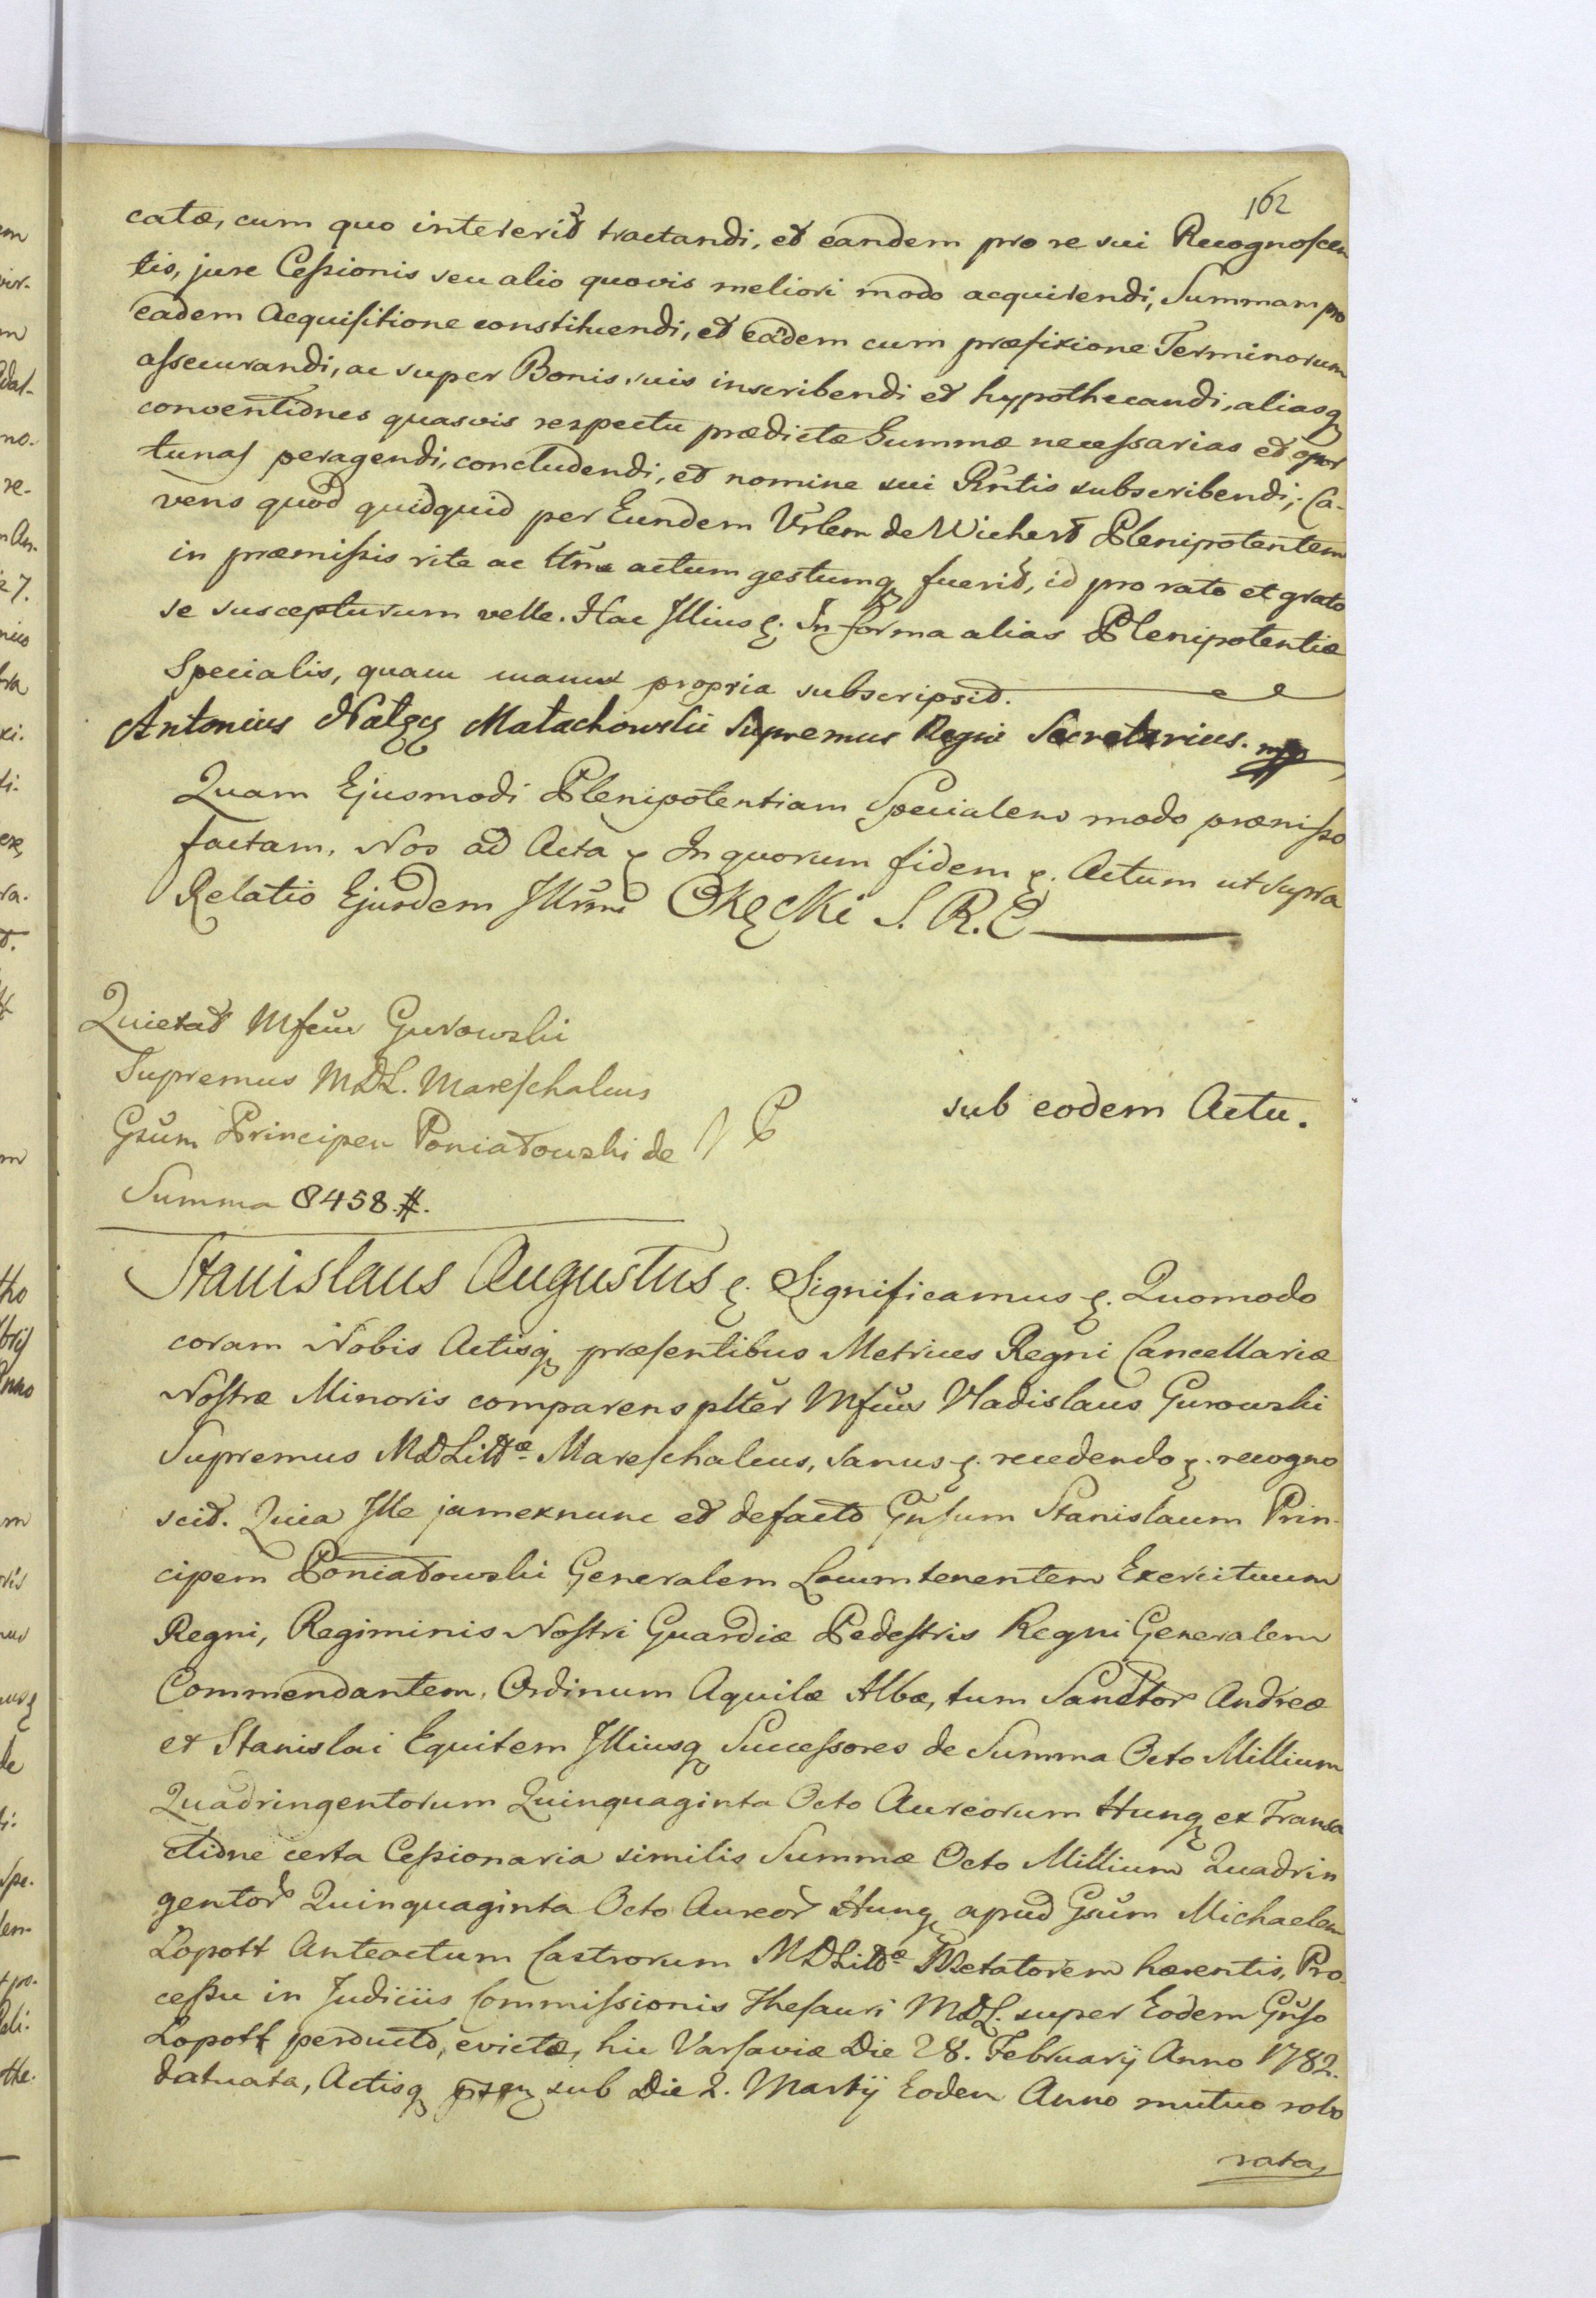 162
catæ, cum quo intererit tractandi, et eandem pro re sui Recognoscen
tis, jure Cessionis seu alio quovis meliori modo acquirendi, Summam pro
eadem Acquisitione constituendi, et eadem cum præfixione Terminorum
assecurandi, ac super Bonis suis inscribendi et hypothecandi, aliasq
conventiones quasvis respectu prædictæ Summæ necessarias et opor
tunas peragendi, concludendi, et nomine sui Rntis subscribendi; Ca-
vens quod quidquid per Eundem Urlem de Wichert Plenipotentem
in præmissis rite ac ltme actum gestumq fuerit, id pro rato et grato
se suscepturum velle. Hac Illius ꝛ. In forma alias Plenipotentiæ
Specialis, quam manu propria subscripsit.
Antonius Nałęcz Małachowski Supremus Regni Secretarius. mpp
Quam Ejusmodi Plenipotentiam Specialem modo præmisso
factam, Nos ad Acta ꝛ In quorum fidem ꝛ. Actum ut supra
Relatio Ejusdem Illmi Okęcki S. R. C
Quietat Mfcus Gurowski
Supremus MDL. Mareschalcus
Gsum Principem Poniatowski de
Summa 8458.#.
sub eodem Actu.
Stanislaus Augustus ꝛ. Significamus ꝛ. Quomodo
coram Nobis Actisq præsentibus Metrices Regni Cancellariæ
Nostræ Minoris comparens plter Mfcus Vladislaus Gurowski
Supremus MDLittæ Mareschalcus, sanus ꝛ. recedendo ꝛ. recogno
scit. Quia Ille jam exnunc et defacto Gnsum Stanislaum Prin-
cipem Poniatowski Generalem Locumtenentem Exercituum
Regni, Regiminis Nostri Guardiæ Pedestris Regni Generalem
Commendantem, Ordinum Aquilæ Albæ, tum Sanctor Andreæ
et Stanislai Equitem Illiusq Successores de Summa Octo Millium
Quadringentorum Quinquaginta Octo Aureorum Hung ex Transa
ctione certa Cessionaria similis Summæ Octo Millium Quadrin
gentor Quinquaginta Octo Aureor Hung apud Gsum Michaelem
Łopott Anteactum Castrorum MDLittæ Metatorem hærentis, Pro-
cessu in Judiciis Commissionis Thesauri MDL. super Eodem Gnso
Łopott perducto, evictæ, hic Varsaviæ Die 28. Februarij Anno 1782.
datuata, Actisq sub Die 2. Martij Eodem Anno mutuo robo
rata,